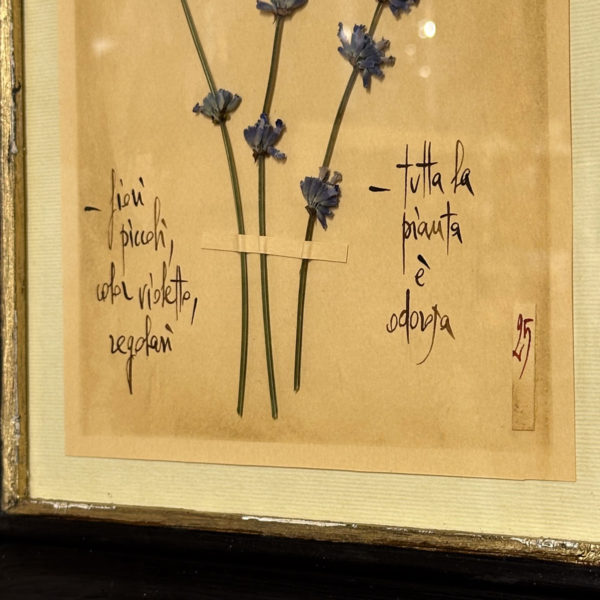 - fiori
piccoli,
color violetto,
regolari
- tutta la
pianta
è
odorosa
25